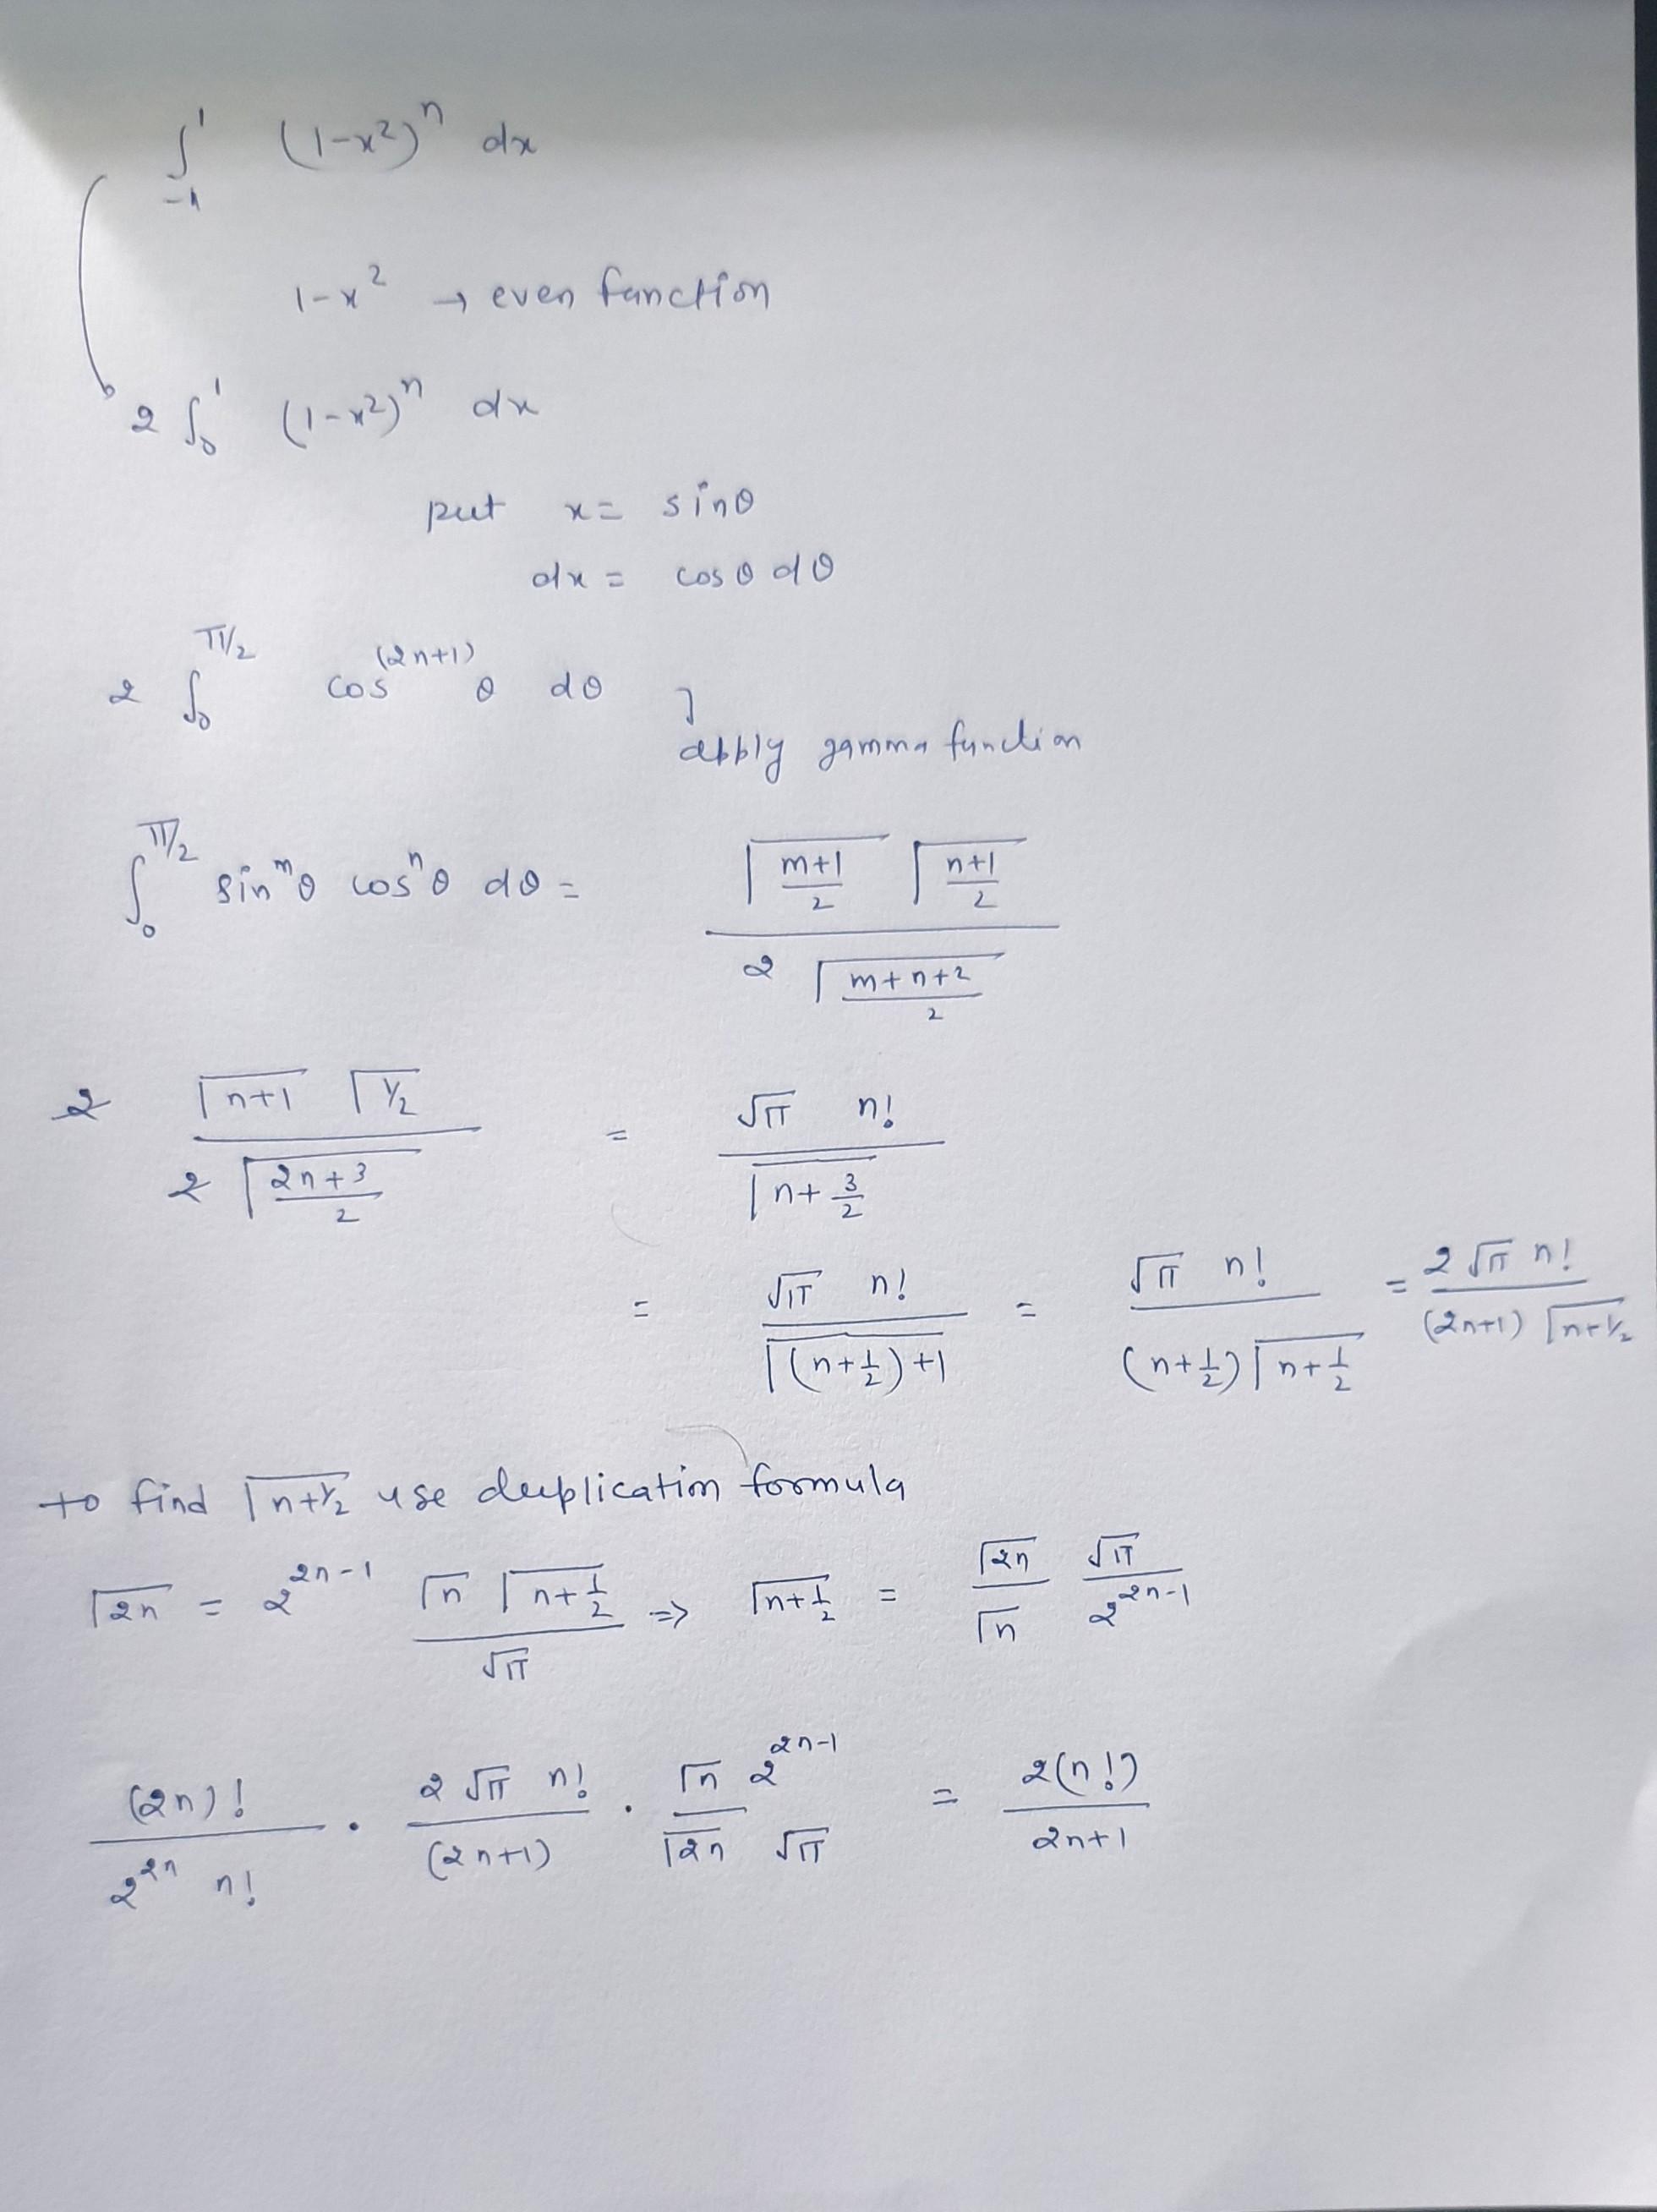 ∫₋₁¹ (1-x²)ⁿ dx
1-x² → even function
2 ∫₀¹ (1-x²)ⁿ dx
put x = sinθ
dx = cosθ dθ
2 ∫₀^(π/2) cos^(2n+1) θ dθ ]
abbly gamma function
∫₀^(π/2) sin^m θ cos^n θ dθ = (Γ((m+1)/2) Γ((n+1)/2)) / (2 Γ((m+n+2)/2))
2 (Γ(n+1) Γ(1/2)) / (2 Γ((2n+3)/2)) = (√π n!) / Γ(n+3/2)
= (√π n!) / Γ((n+1/2)+1) = (√π n!) / ((n+1/2) Γ(n+1/2)) = (2√π n!) / ((2n+1) Γ(n+1/2))
to find Γ(n+1/2) use duplication formula
Γ(2n) = 2^(2n-1) (Γ(n) Γ(n+1/2)) / √π ⇒ Γ(n+1/2) = (Γ(2n) / Γ(n)) (√π / 2^(2n-1))
(2n)! / (2^(2n) n!) · (2√π n!) / (2n+1) · (Γ(n) 2^(2n-1)) / (Γ(2n) √π) = 2(n!) / (2n+1)